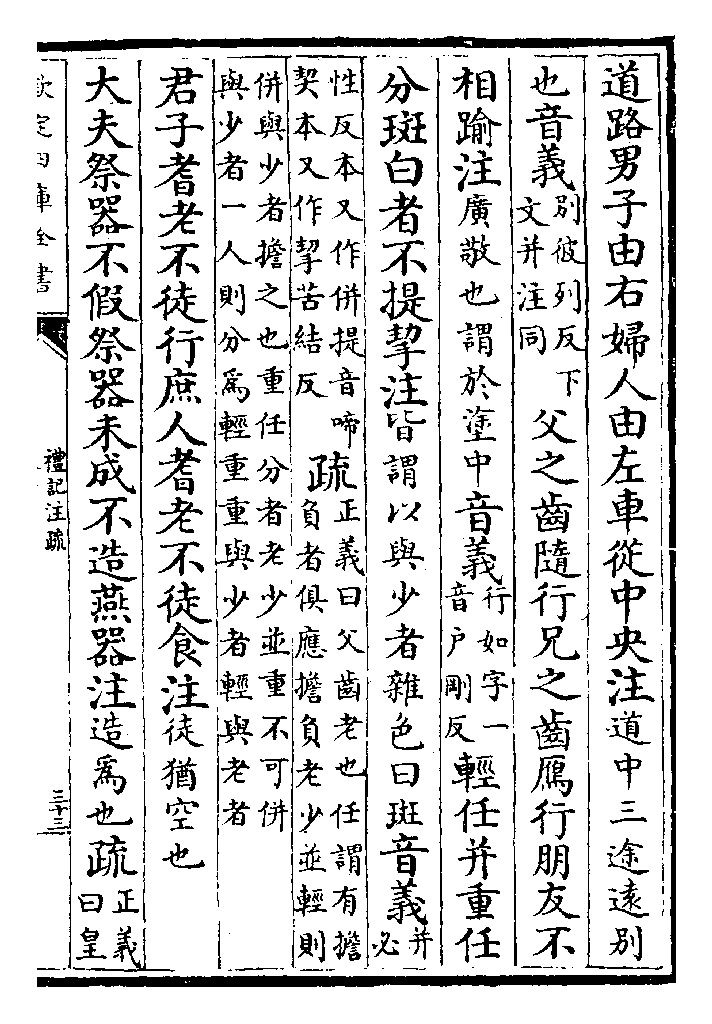 道路男子由右婦人由左車從中央注道中三途遠别
也音義别彼列反下文并注同父之齒隨行兄之齒鴈行朋友不
相踰注廣敬也謂於塗中音義行如字一音户剛反輕任并重任
分斑白者不提挈注皆謂以與少者雜色曰斑音義并必
性反本又作併提音啼挈本又作挈苦結反疏正義曰父齒老也任謂有擔負者俱應擔負老少並輕則
併與少者擔之也重任分者老少並重不可併與少者一人則分為輕重重與少者輕與老者
君子耆老不徒行庶人耆老不徒食注徒猶空也
大夫祭器不假祭器未成不造燕器注造為也疏正義曰皇
欽定四庫全書
禮記注疏
三十三